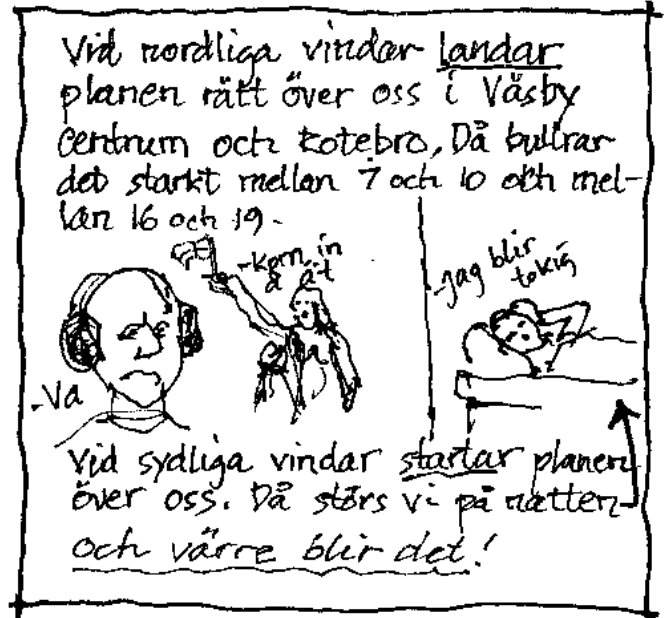 Vid nordliga vindar landar
planen rätt över oss i Väsby
centrum och Rotebro, Då bullrar
det starkt mellan 7 och 10 och mel-
lan 16 och 19.
-kom in
å ät
-jag blir
tokig
-Va
Vid sydliga vindar startar planen
över oss. Då störs vi på natten
och värre blir det!